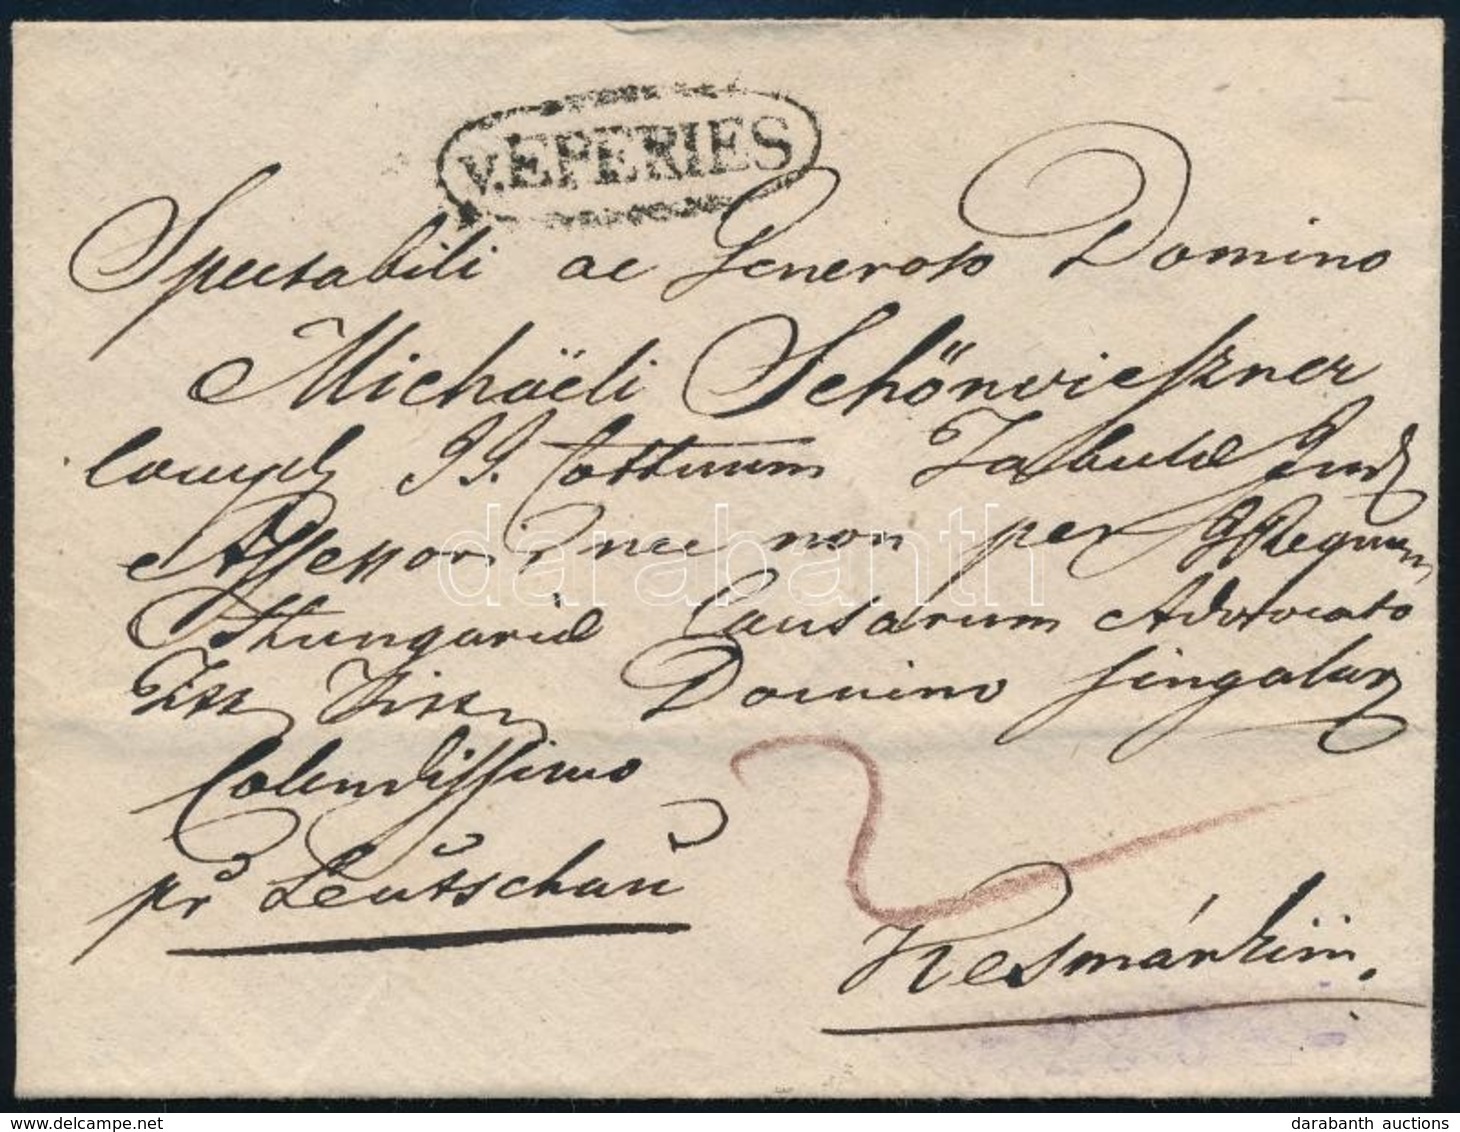 V. EPERIES
Spectabili ac Generoso Domino
Michaëli Schönvieszner
Compl JJ. Cottuum Tabulæ Jud
Assessori, nec non per I. Regnum
Hungariæ Causarum Advocato
Domino Singular
Colendissimo
pr Leütschau
2
Kesmárkini.
darabanth
darabanth auctions